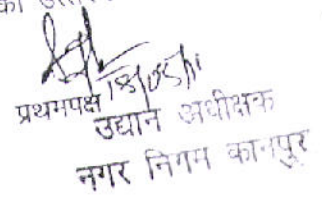 का
प्रथमपक्ष 18/05/11
उद्यान अधीक्षक
नगर निगम कानपुर